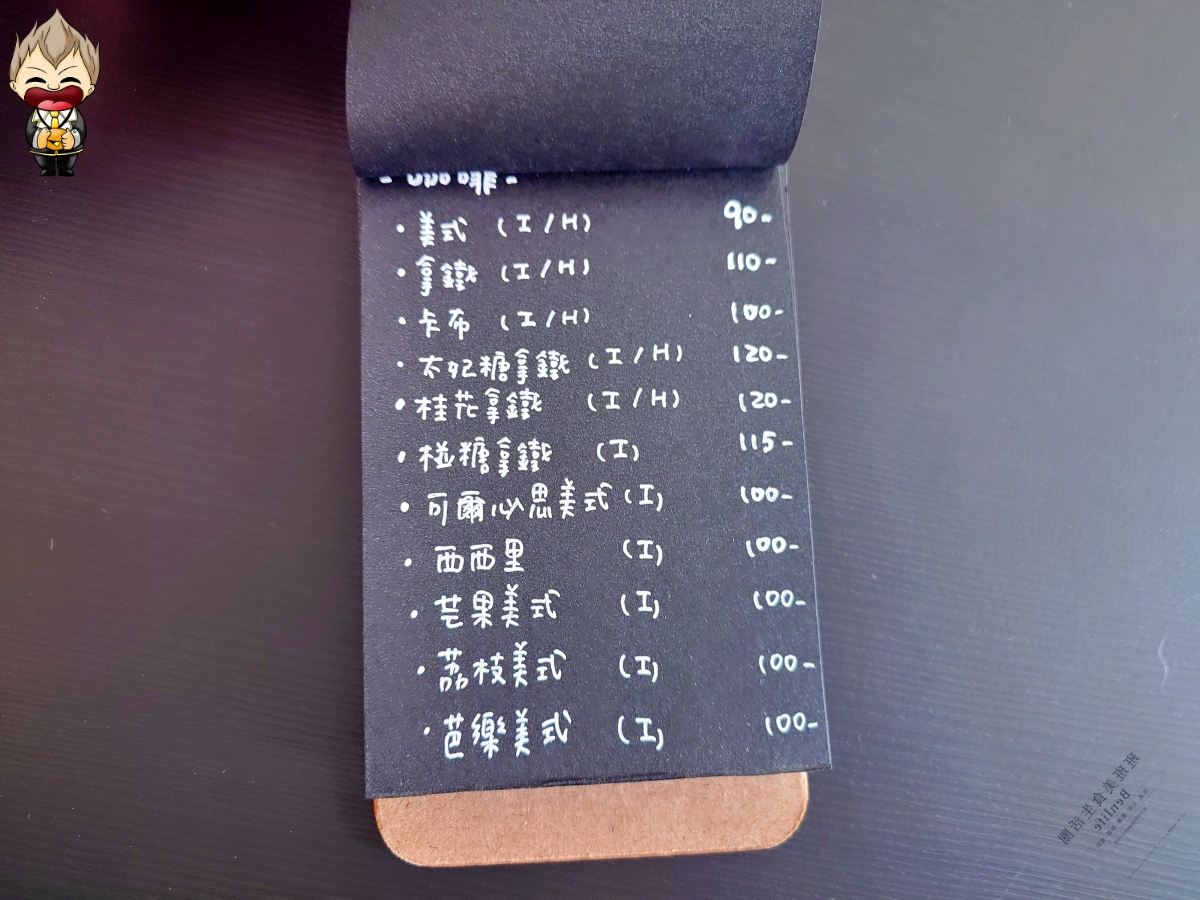 - 咖啡 -
・美式 (I/H) 90-
・拿鐵 (I/H) 110-
・卡布 (I/H) 100-
・太妃糖拿鐵 (I/H) 120-
・桂花拿鐵 (I/H) 120-
・椪糖拿鐵 (I) 115-
・可爾必思美式 (I) 100-
・西西里 (I) 100-
・芒果美式 (I) 100-
・荔枝美式 (I) 100-
・芭樂美式 (I) 100-
班班美食生活圈
Benlife